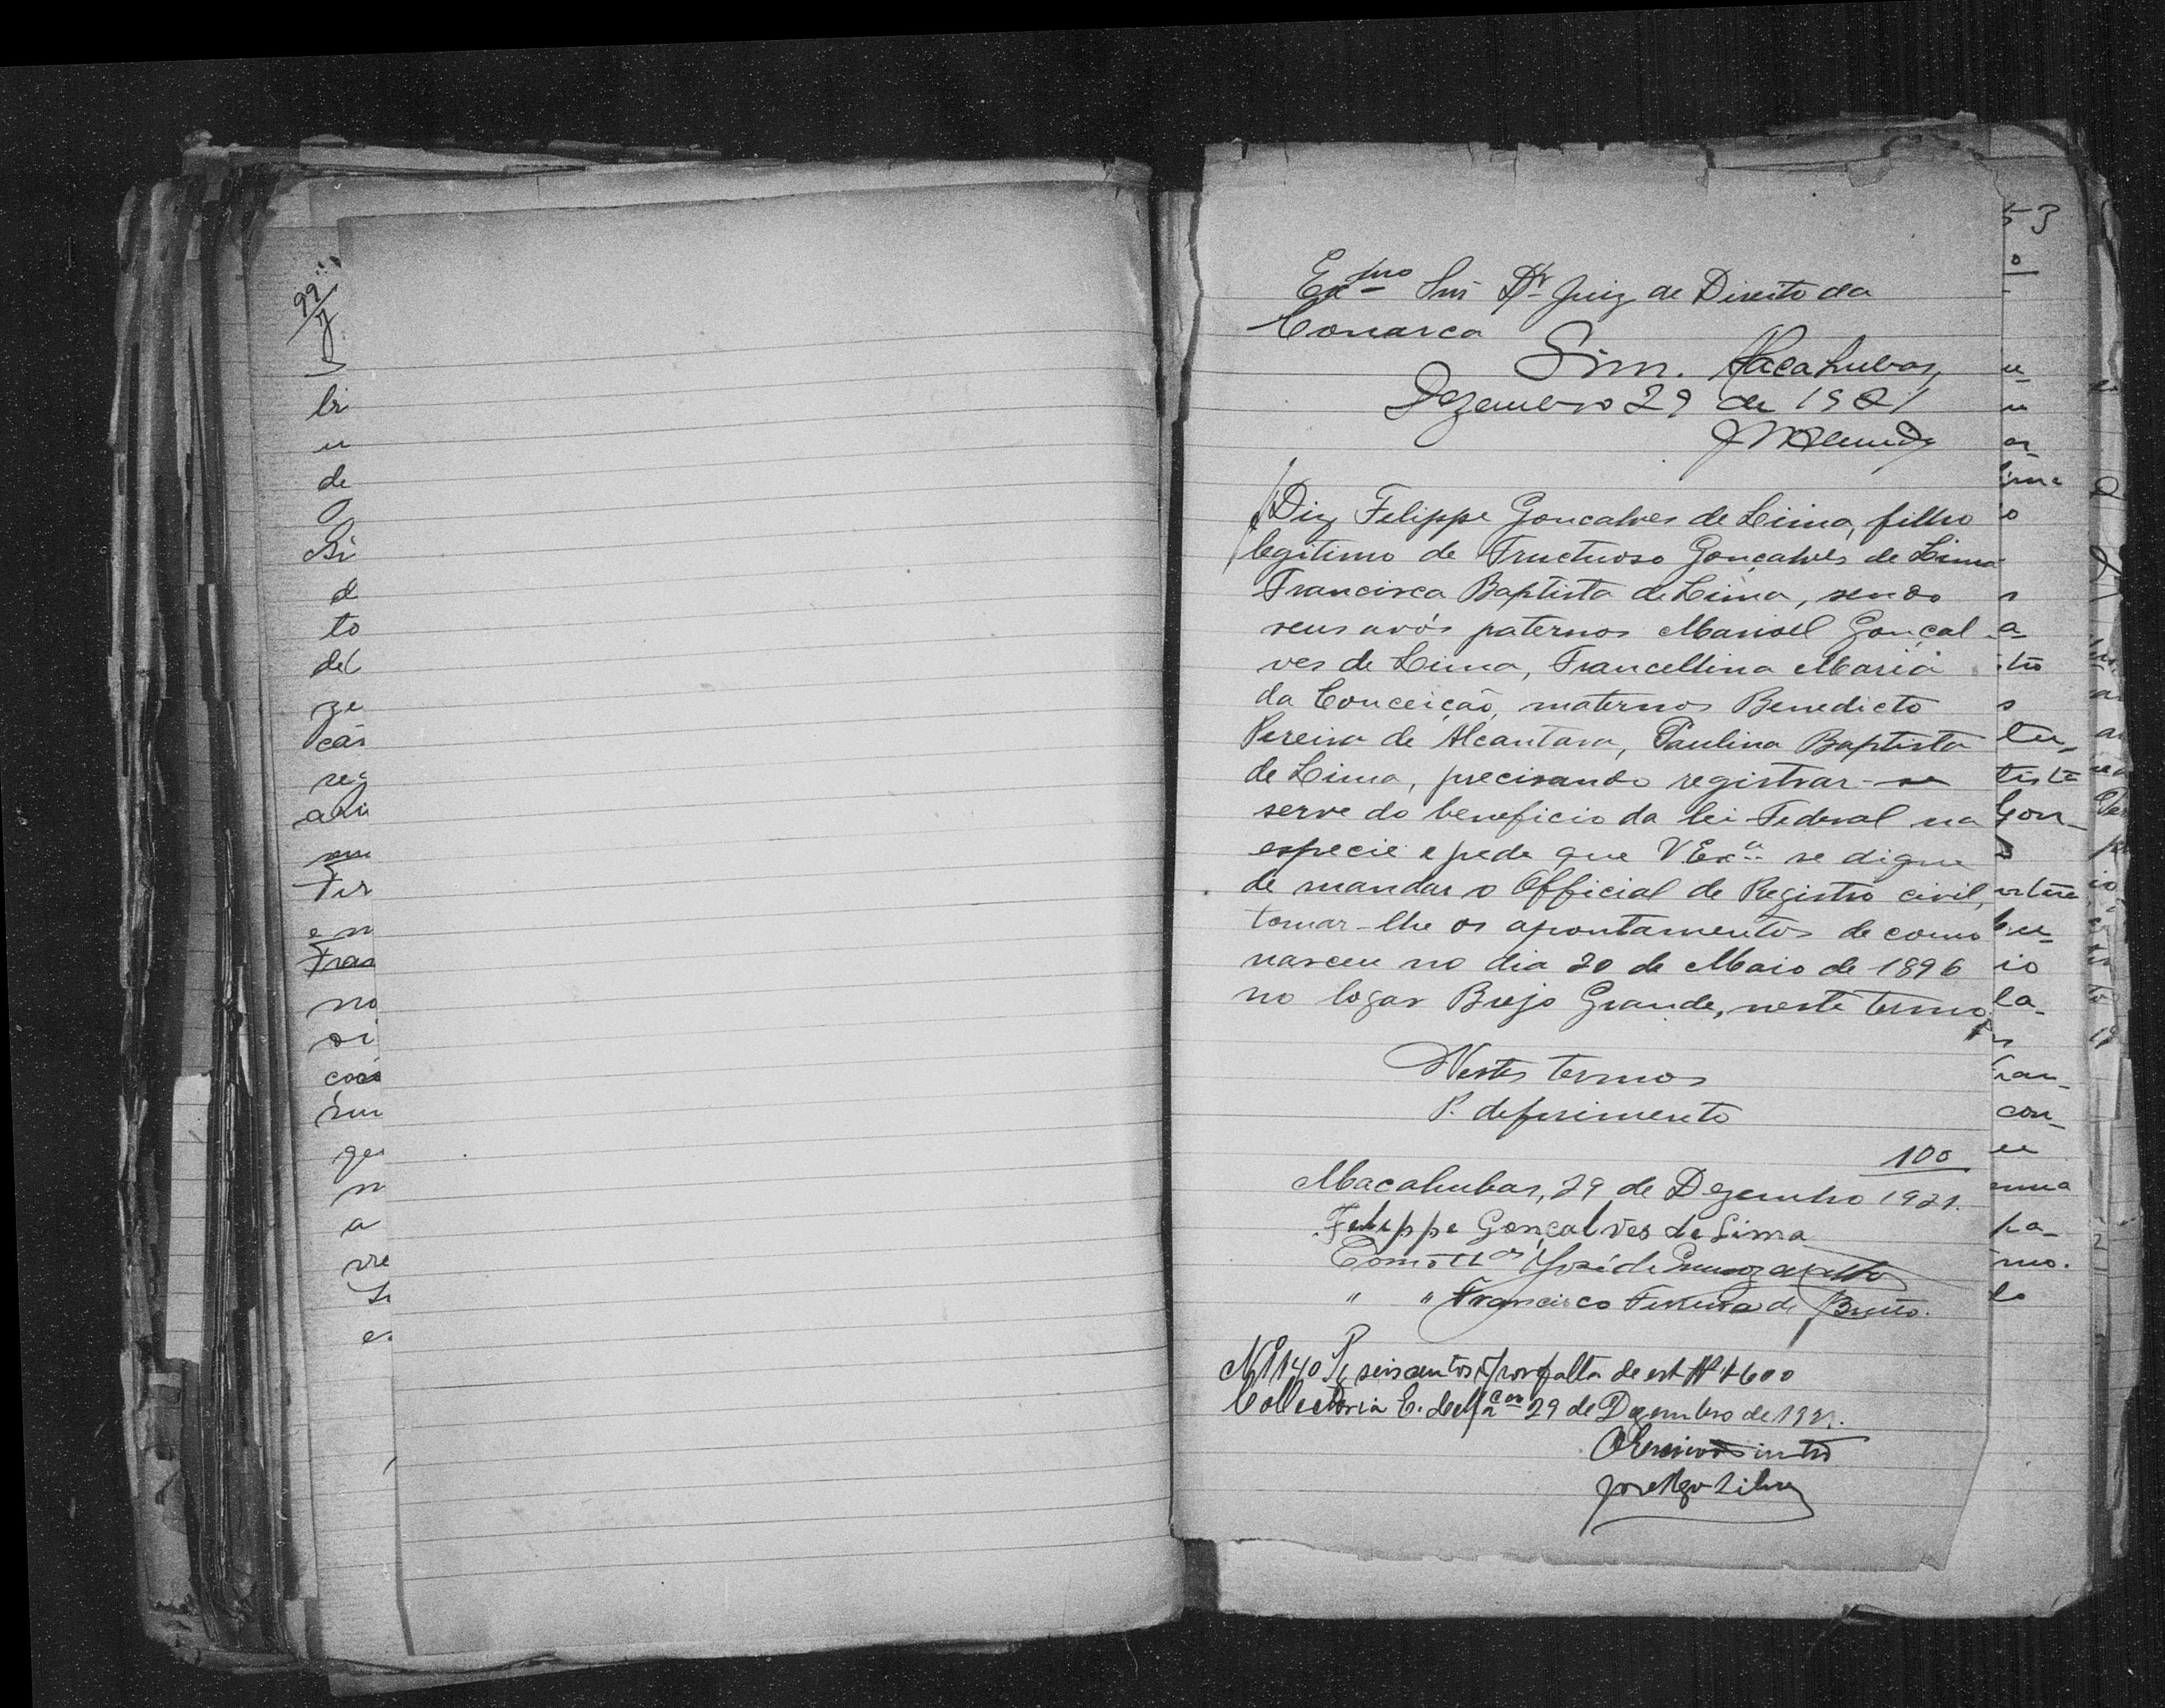 Exmo Snr Dr Juiz de Direito da
Comarca
Sim. Macahubas,
Dezembro 29 de 1921
Diz Felippe Goncalves de Lima, filho
legitimo de Fructuoso Gonçalves de Lima
Francisca Baptista de Lima, sendo
seus avós paternos Manoel Gonçal-
ves de Lima, Francellina Maria
da Conceição, maternos Benedicto
Pereira de Alcantara, Paulina Baptista
de Lima, precisando registrar-se
serve do beneficio da lei Federal na
especie e pede que V Exca se digne
de mandar o Official de Registro civil,
tomar-lhe os apontamentos de como
nasceu no dia 20 de Maio de 1896
no logar Brejo Grande, neste termo.
Nestes termos
P. deferimento
100
Macahubas, 29 de Dezembro 1921.
Felippe Gonçalves de Lima
Como ttas José de
" " Francisco Ferreira de Britto.
Nº 140 Pg seiscentos rs por falta de est. # 600
Collectoria E. de Mcas 29 de Dezembro de 1921.
53
99
de
to